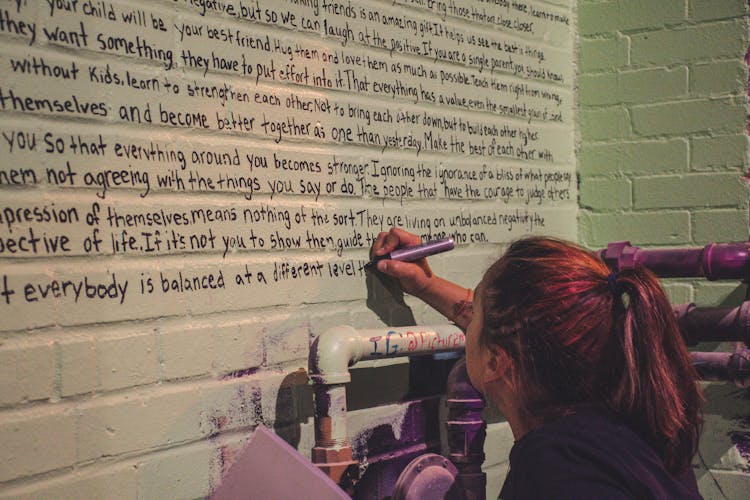 making friends is an amazing gift. It helps us see the best in things.
your child will be your best friend. Hug them and love them as much as possible. Teach them right from wrong,
negative, but so we can laugh at the positive. If you are a single parent, you should know,
they want something, they have to put effort into it. That everything has a value, even the smallest grain of sand
without Kids, learn to strengthen each other. Not to bring each other down, but to build each other higher.
themselves and become better together as one than yesterday. Make the best of each other with
you So that everything around you becomes stronger. Ignoring the ignorance of a bliss of what people say
not agreeing with the things you say or do. The people that have the courage to judge others
of themselves, means nothing of the sort. They are living on unbalanced negativity the
of life. If it's not you to show then, guide me who can.
everybody is balanced at a different level
IG:@